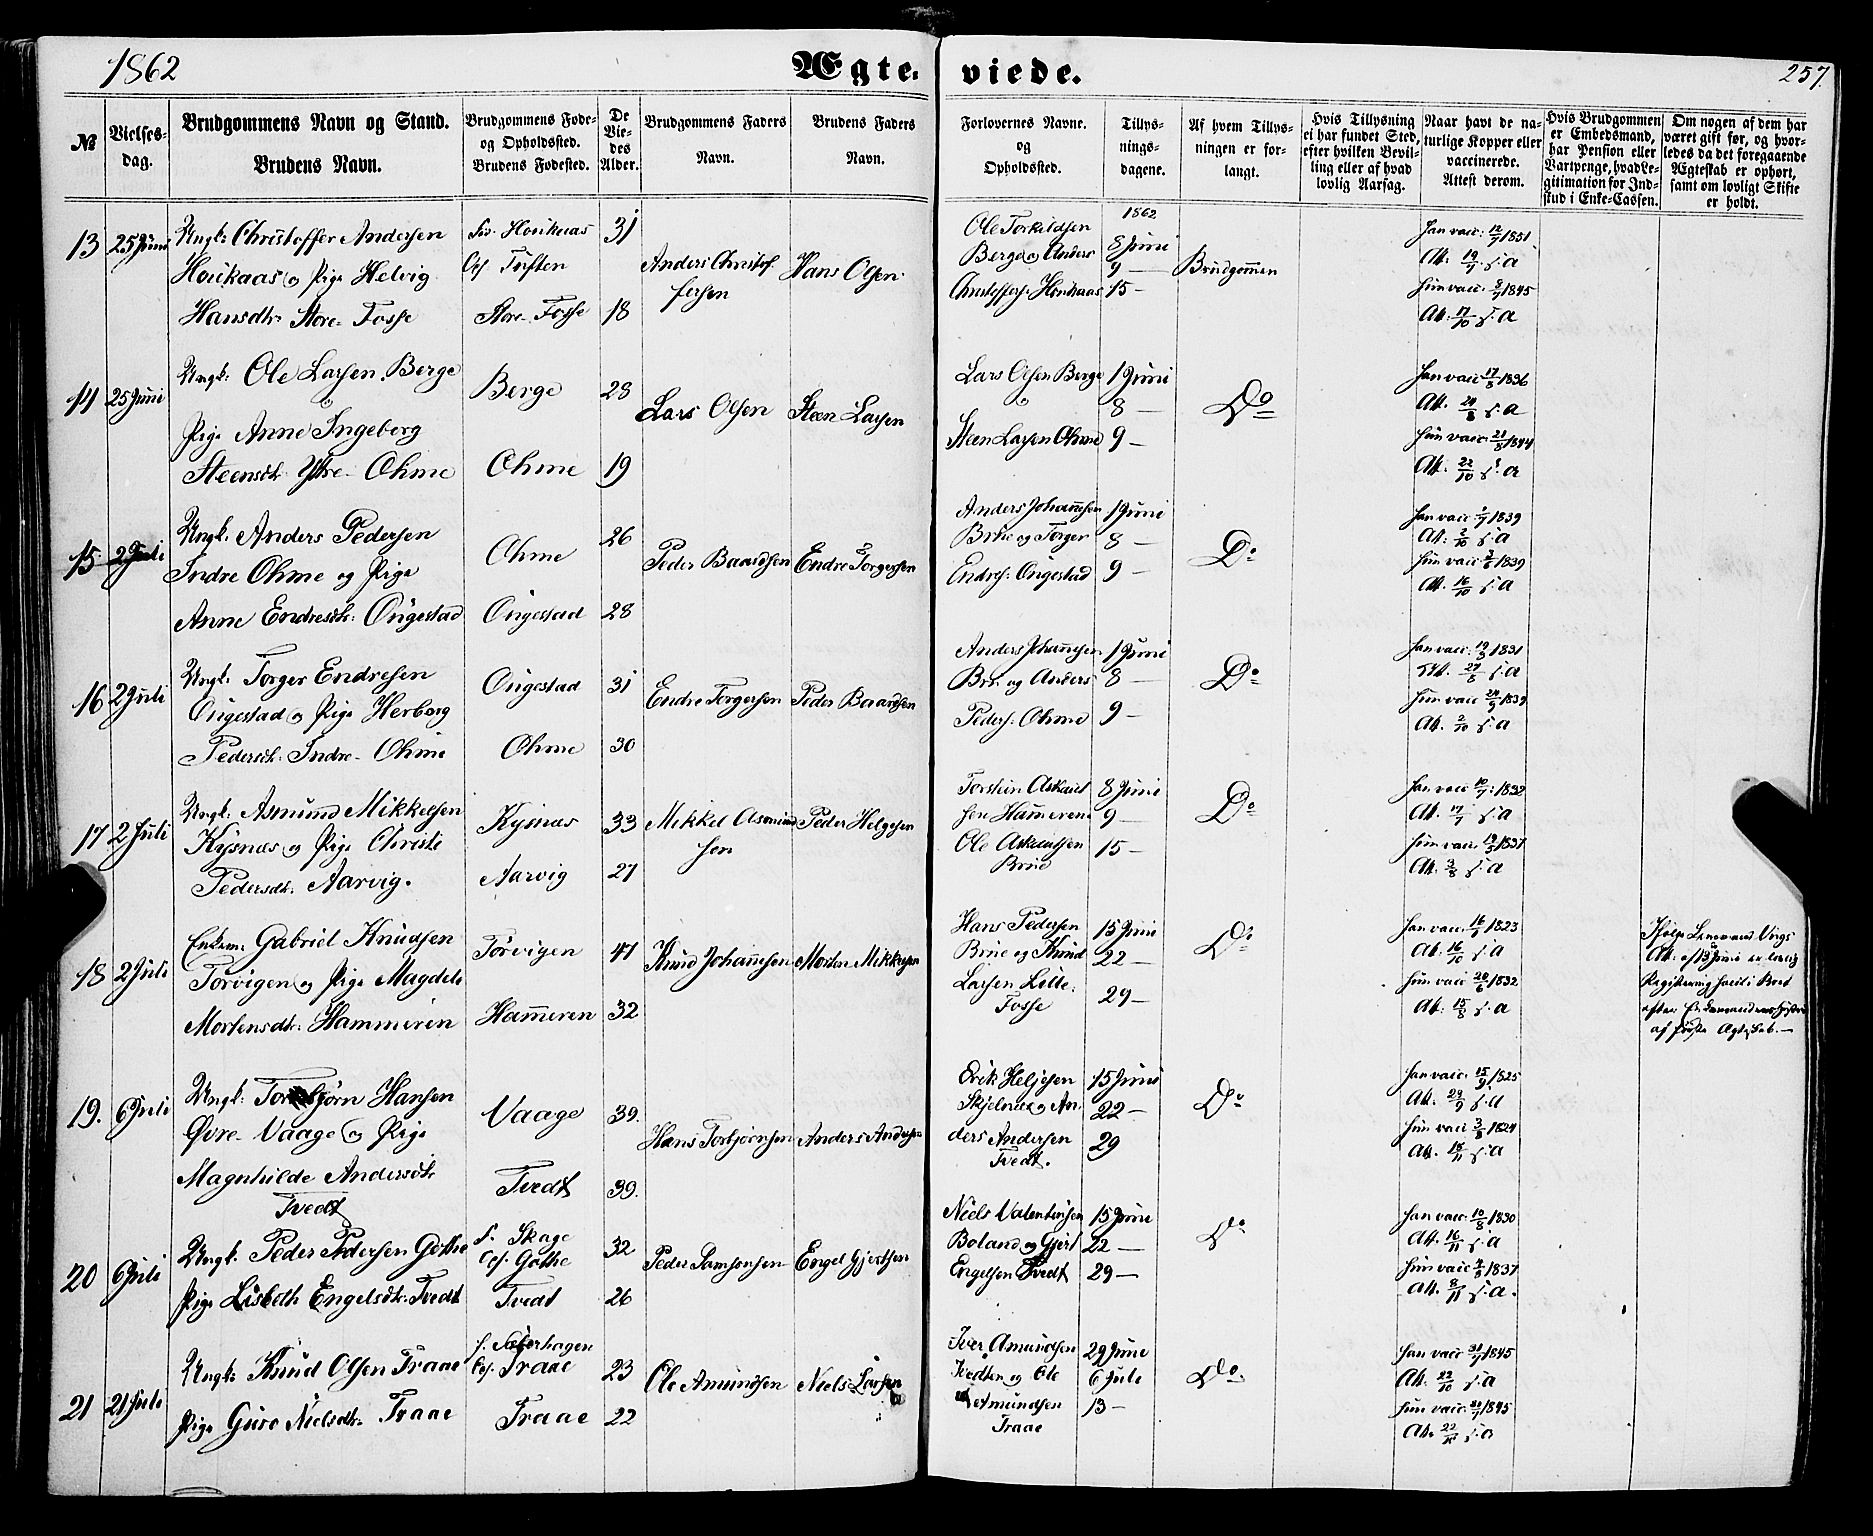 1862
Ægte-
viede.
257.
№
Vielses-
dag.
Brudgommens Navn og Stand.
Brudens Navn.
Brudgommens Føde-
og Opholdssted.
Brudens Fødested.
De
Vie-
des
Alder.
Brudgommens Faders
Navn.
Brudens Faders
Navn.
Forlovernes Navne.
og
Opholdssted.
Tillys-
nings-
dagene.
Af hvem Tillys-
ningen er for-
langt.
Hvis Tillysning
ei har fundet Sted,
efter hvilken Bevil-
ling eller af hvad
lovlig Aarsag.
Naar havt de na-
turlige Kopper eller
vaccinerede.
Attest derom.
Hvis Brudgommen
er Embedsmand,
har Pension eller
Vartpenge, hvad Le-
gitimation for Ind-
skud i Enke-Cassen.
Om nogen af dem har
været gift før, og hvor-
ledes da det foregaaende
Ægteskab er ophørt,
samt om lovligt Skifte
er holdt.
13 25 Juni
Ungk: Christoffer Andersen
Houkaas og Pige Helvig
Hansdtr Store- Fosse
Houkaas
Tuften
Store- Fosse
31
18
Anders Christof
fersen
Hans Olsen
Ole Torkildsen
Berge og Anders
Christoffers: Houkaas
1862
8 Juni
9 —
15 —
Brudgommen
Han vacc: 12/7 1831
Att: 19/7 s. a
Hun vacc: 8/9 1845
Att: 17/10 s. a
14 25 Juni
Ungk: Ole Larsen Berge
Pige Anne Ingeborg
Steensdtr Ytre- Ohme
Berge
Ohme
28
19
Lars Olsen
Steen Larsen
Lars Olsen Berge
Steen Larsen Ohme
1 Juni
8 —
9 —
Do
Han vacc 17/8 1836
Att. 24/8 s. a
Hun vacc: 21/8 1844
Att. 22/10 s. a
15 2 Juli
Ungk. Anders Pedersen
Indre Ohme og Pige
Anne Endresdtr: Ongestad
Ohme
Ongestad
26
28
Peder Baardsen
Endre Torgersen
Anders Johannesen
Brue og Torger
Endres: Ongestad
1 Juni
8 —
9 —
Do
Att: 2/10 s. a
Att. 16/10 s. a
16 2 Juli
Ungk. Torger Endresen
Ongestad og Pige Herborg
Pedersdtr: Indre- Ohme
Ongestad
Ohme
31
30
Endre Torgersen
Peder Baardsen
Anders Johannesen
Bru. og Anders
Peders: Ohme
1 Juni
8 —
9 —
Do
Att. 27/8 s. a
Hun vacc: 24/9 1839
Att. 2/10 s. a
17 2 Juli
Ungk. Asmund Mikkelsen
Kysnæs og Pige Christi
Pedersdtr. Aarvig.
Kysnæs
Aarvig
33
27
Mikkel Asmund
sen
Peder Helgesen
Torstein Askeut
sen Hammeren
Ole Askeutsen
Brue
8 Juni
9 —
15 —
Do
Han vacc: 10/7 1832
Att. 17/7 s. a
Hun vacc: 19/3 1837
Att. 3/8 s. a
18 2 Juli
Enkem: Gabriel Knudsen
Torvigen og Pige Magdele
Mortensdtr: Hammeren
Torvigen
Hammeren
41
32
Knud Johannesen
Morten Mikkelsen
Hans Pedersen
Brue og Knud
Larsen Lille-
Fosse
15 Juni
22 —
29 —
Do
Att. 16/10 s. a
Hun vacc 20/6 1832
Att. 15/8 s. a
Ifølge Lensmand Vigs
Att: af 13 Juni er lovlig
Registrering holdt i Boet
efter Enkemandens Hustru
af første Ægteskab. —
19. 6 Juli
Ungk: Torbjørn Hansen
Øvre- Vaage og Pige
Magnhilde Andersdtr
Tvedt
Vaage
Tvedt
39.
39.
Hans Torbjørnsen
Anders Andersen
Erik Heljesen
Skjelnæs og An-
ders Andersen
Tvedt.
15 Juni
22 —
29
Do
Han vacc: 15/9 1825
Att. 29/9 s. a
Hun vacc 3/8 1824
Att. 16/11 s. a
20 6 Juli
Ungk. Peder Pedersen Gøthe
Pige Lisbeth Engelsdtr. Tvedt
f. Skage
Gøthe
Tvedt
32
26
Peder Samsonsen
Engel Gjertsen
Niels Valentinsen
Boland og Gjert
Engelsen Tvedt
15 Juni
22 —
29 —
Do
Han vacc. 10/8 1830
Att. 16/11 s. a
Hun vacc 4/8 1837
Att. 8/11 s. a.
21 21 Juli
Ungk. Knud Olsen Traae
Pige Guro Nielsdtr. Traae
f. Sæterhagen
Traae
Traae
23
22
Ole Amundsen
Niels Larsen
Iver Amundsen
Tvedten og Ole
Amundsen
Traae
29 Juni
6 Juli
13 —
Do
Att. 22/10 s. a
Att. 22/10 s. a